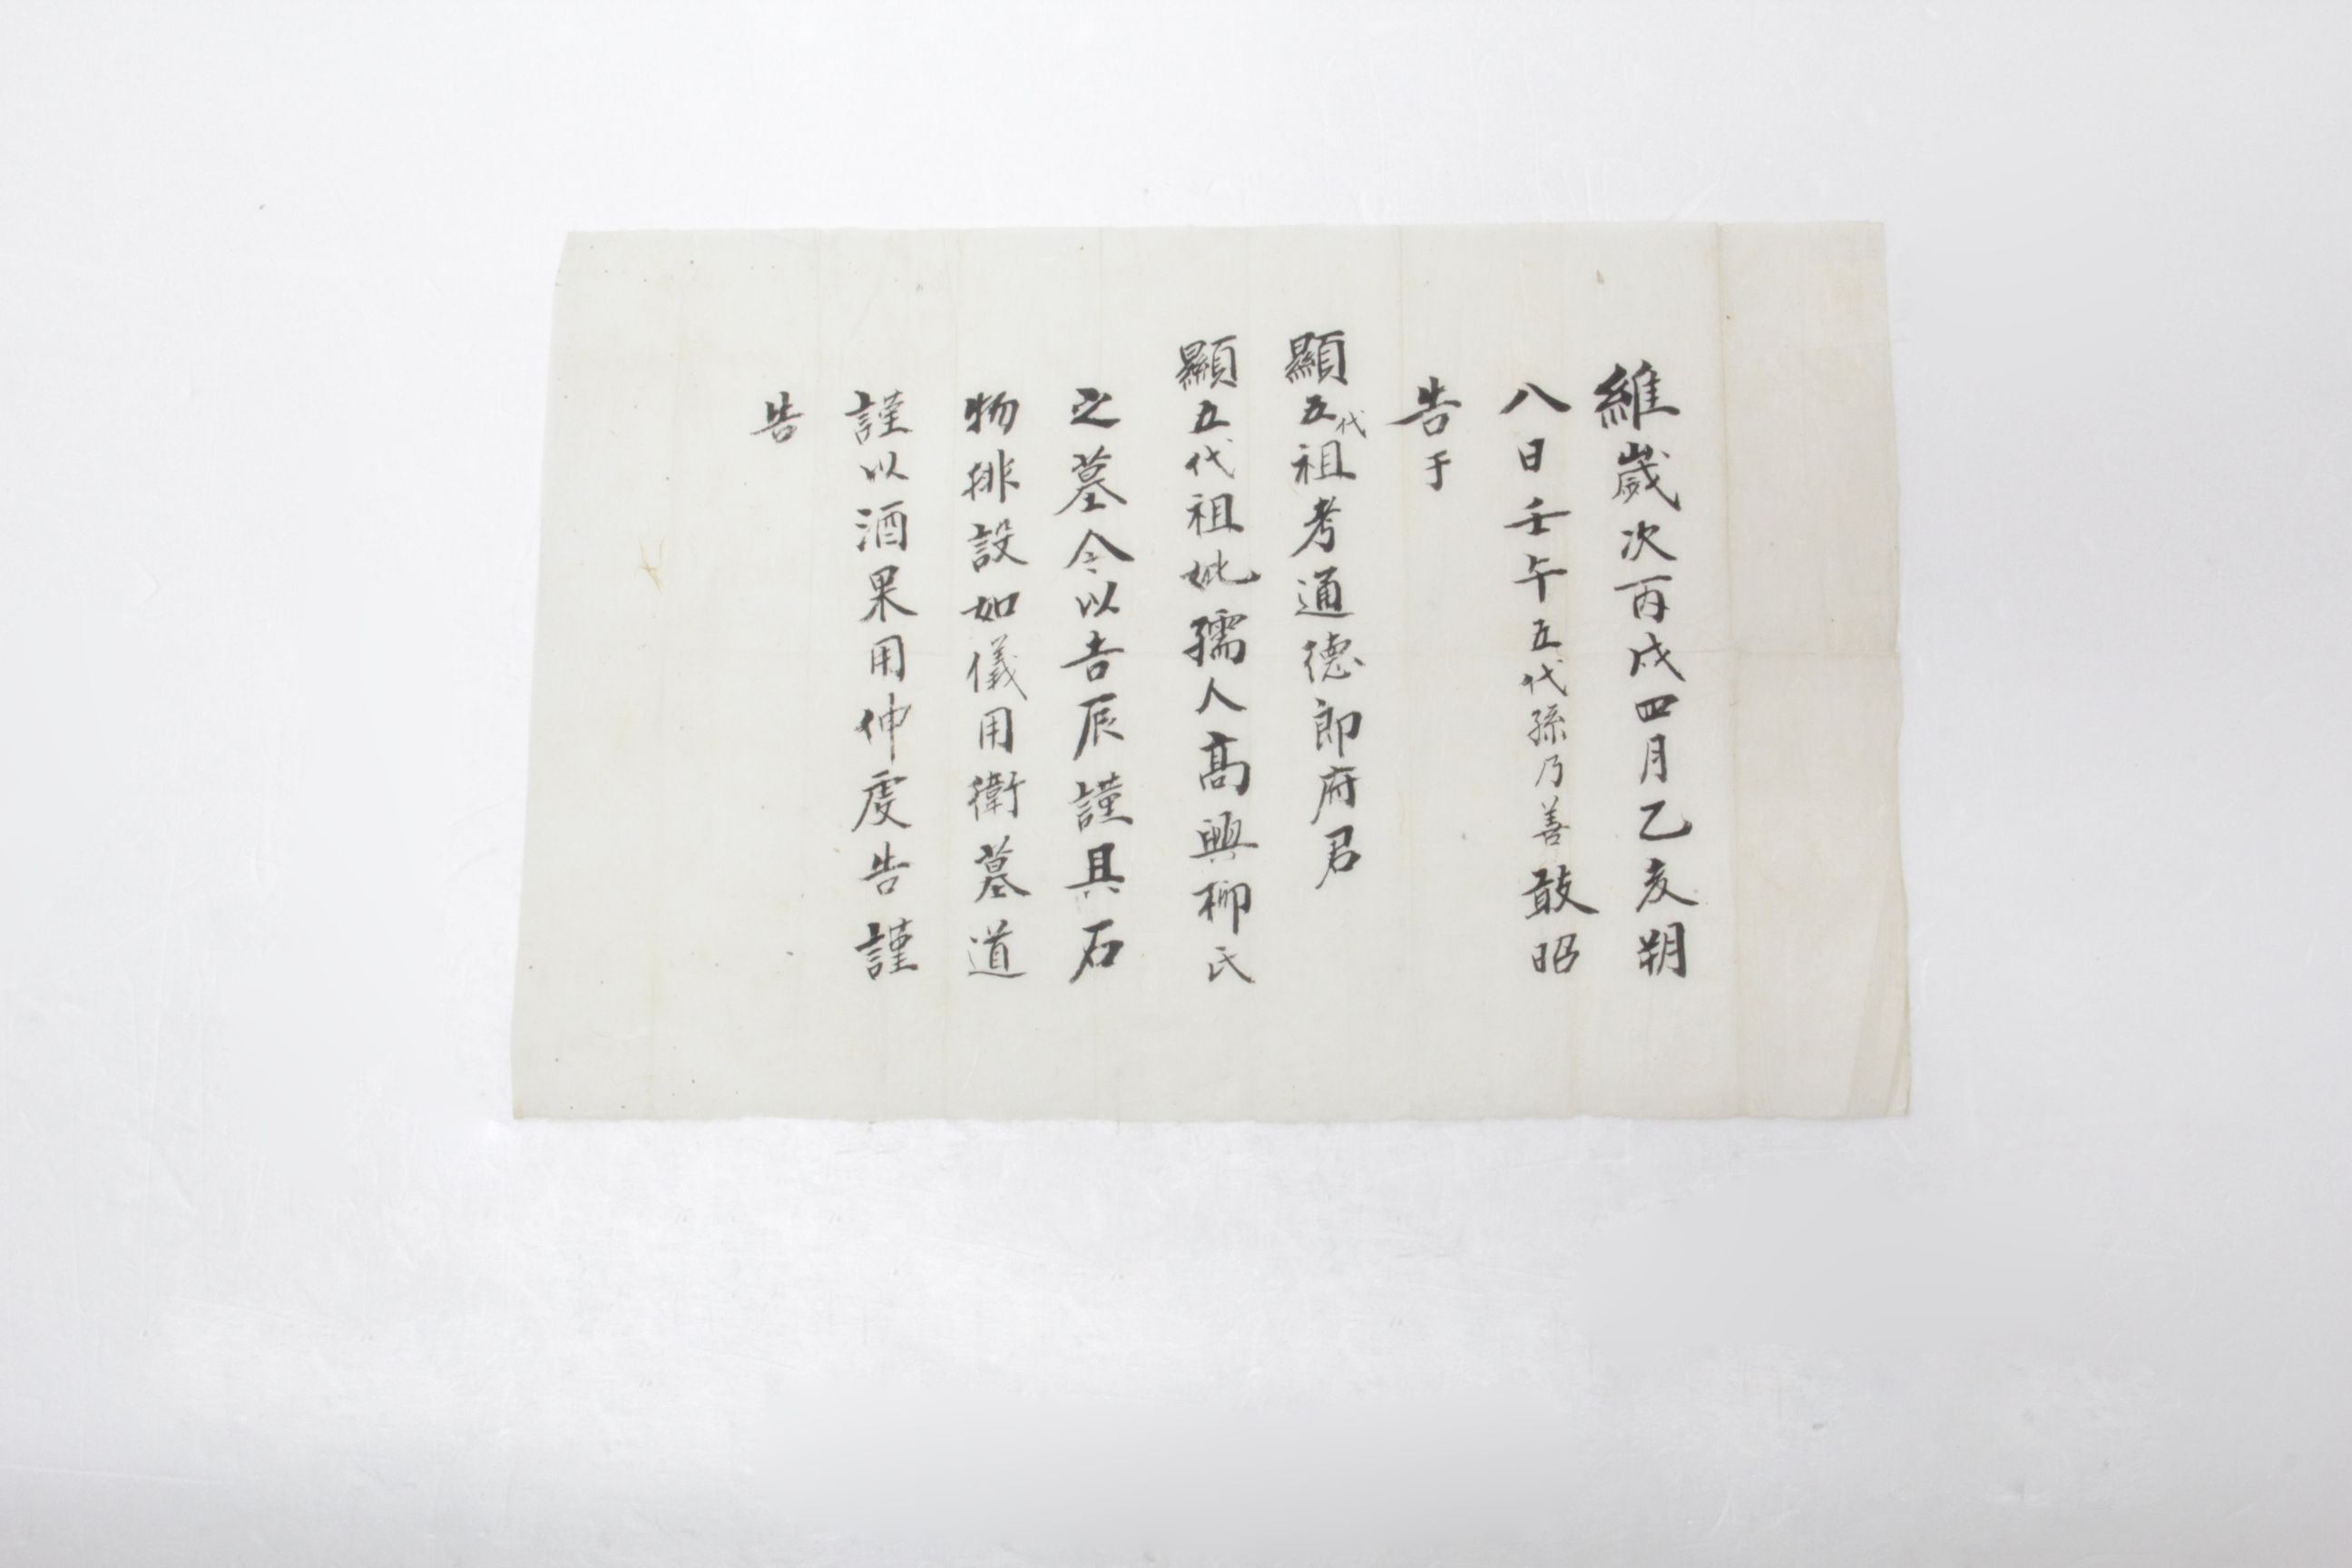 維歲次丙戌四月乙亥朔
八日壬午五代孫乃善敢昭
告于
顯五代祖考通德郎府君
顯五代祖妣孺人高興柳氏
之墓今以吉辰謹具石
物排設如儀用衛墓道
謹以酒果用伸虔告謹
告